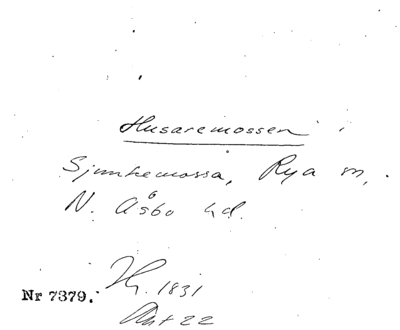 Husaremossen
Sjunkemossa, Rya sn,
N. Åsbo hd.
1831
Nr 7379.
22